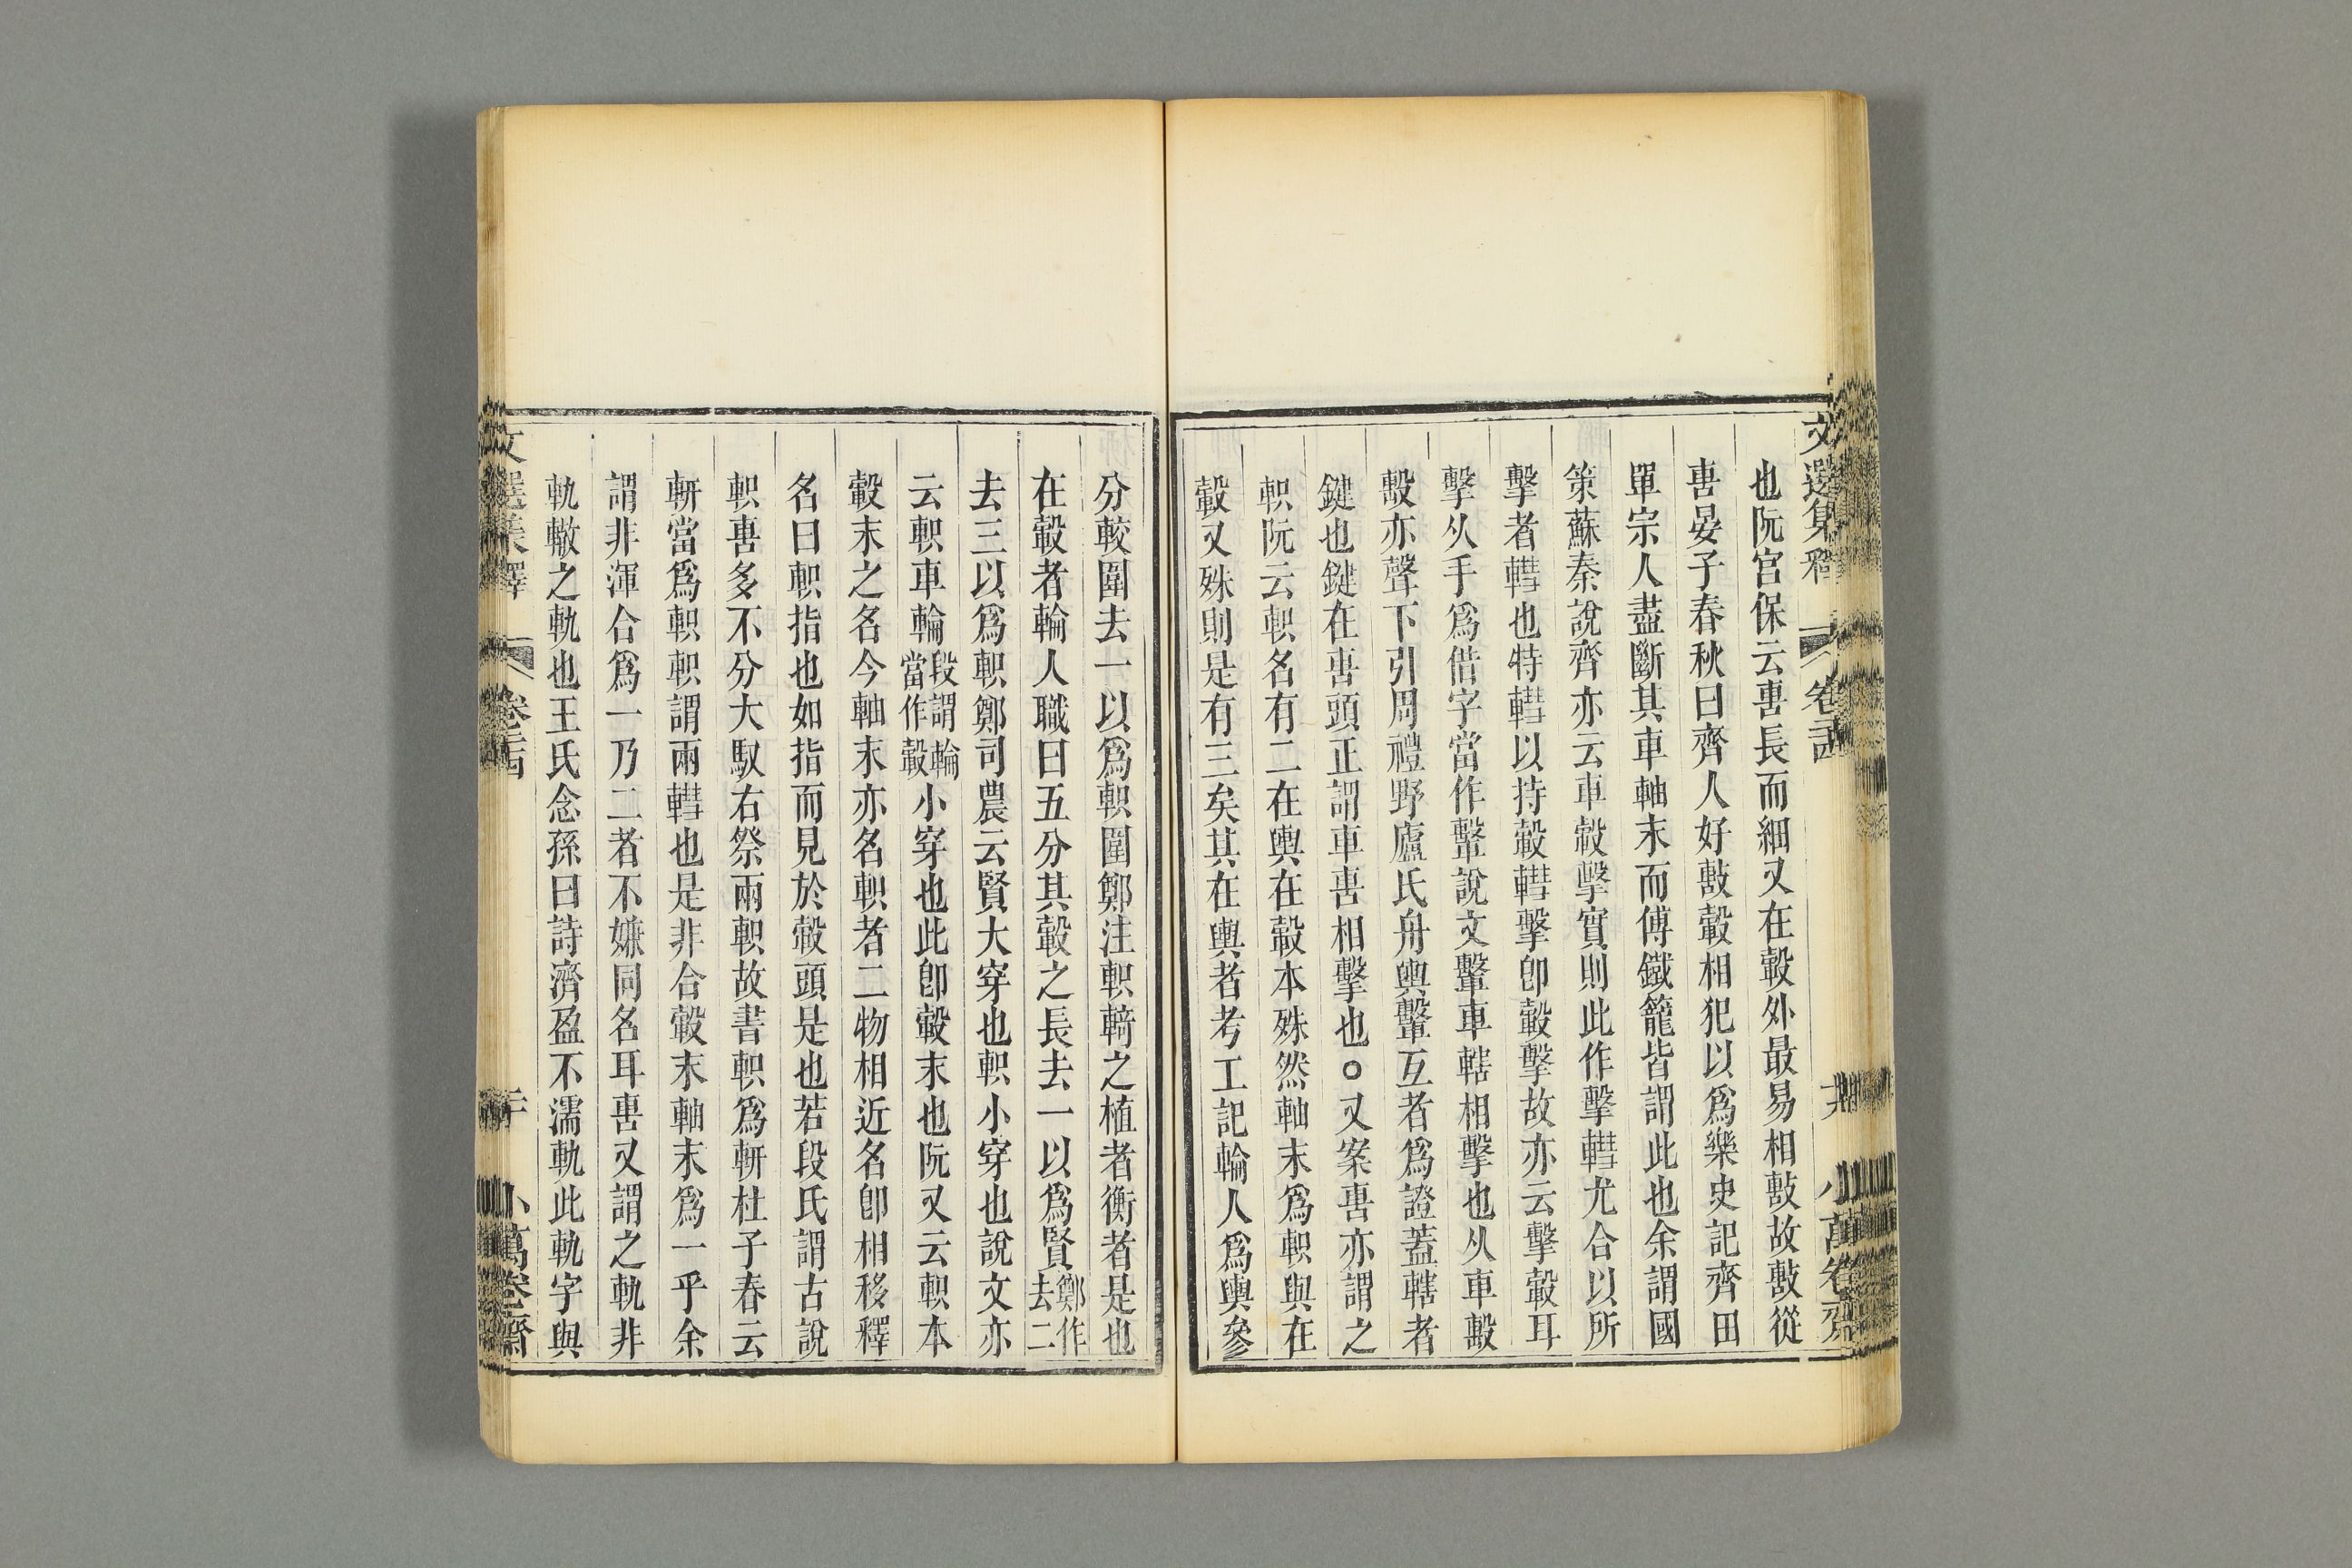 文選集釋 卷 小萬卷齋
也阮宫保云軎長而細又在轂外最易相敼故敼從
軎晏子春秋曰齊人好敼轂相犯以爲樂史記齊田
單宗人盡斷其車軸末而傅鐵籠皆謂此也余謂國
策蘇秦說齊亦云車轂擊實則此作擊轊尤合以所
擊者轊也特轊以持轂轊擊卽轂擊故亦云擊轂耳
擊从手爲借字當作轚說文轚車轄相擊也从車毄
毄亦聲下引周禮野廬氏舟輿轚互者爲證蓋轄者
鍵也鍵在軎頭正謂車軎相擊也○又案軎亦謂之
軹阮云軹名有二在輿在轂本殊然軸末爲軹與在
轂又殊則是有三矣其在輿者考工記輪人爲輿參
分較圍去一以爲軹圍鄭注軹輢之植者衡者是也
在轂者輪人職曰五分其轂之長去一以爲賢鄭作去二
去三以爲軹鄭司農云賢大穿也軹小穿也說文亦
云軹車輪段謂輪當作轂小穿也此卽轂末也阮又云軹本
轂末之名今軸末亦名軹者二物相近名卽相移釋
名曰軹指也如指而見於轂頭是也若段氏謂古說
軹軎多不分大馭右祭兩軹故書軹爲軿杜子春云
軿當爲軹軹謂兩轊也是非合轂末軸末爲一乎余
謂非渾合爲一乃二者不嫌同名耳軎又謂之軌非
軌轍之軌也王氏念孫曰詩濟盈不濡軌此軌字與
文選集釋 卷二十四 二十 小萬卷齋